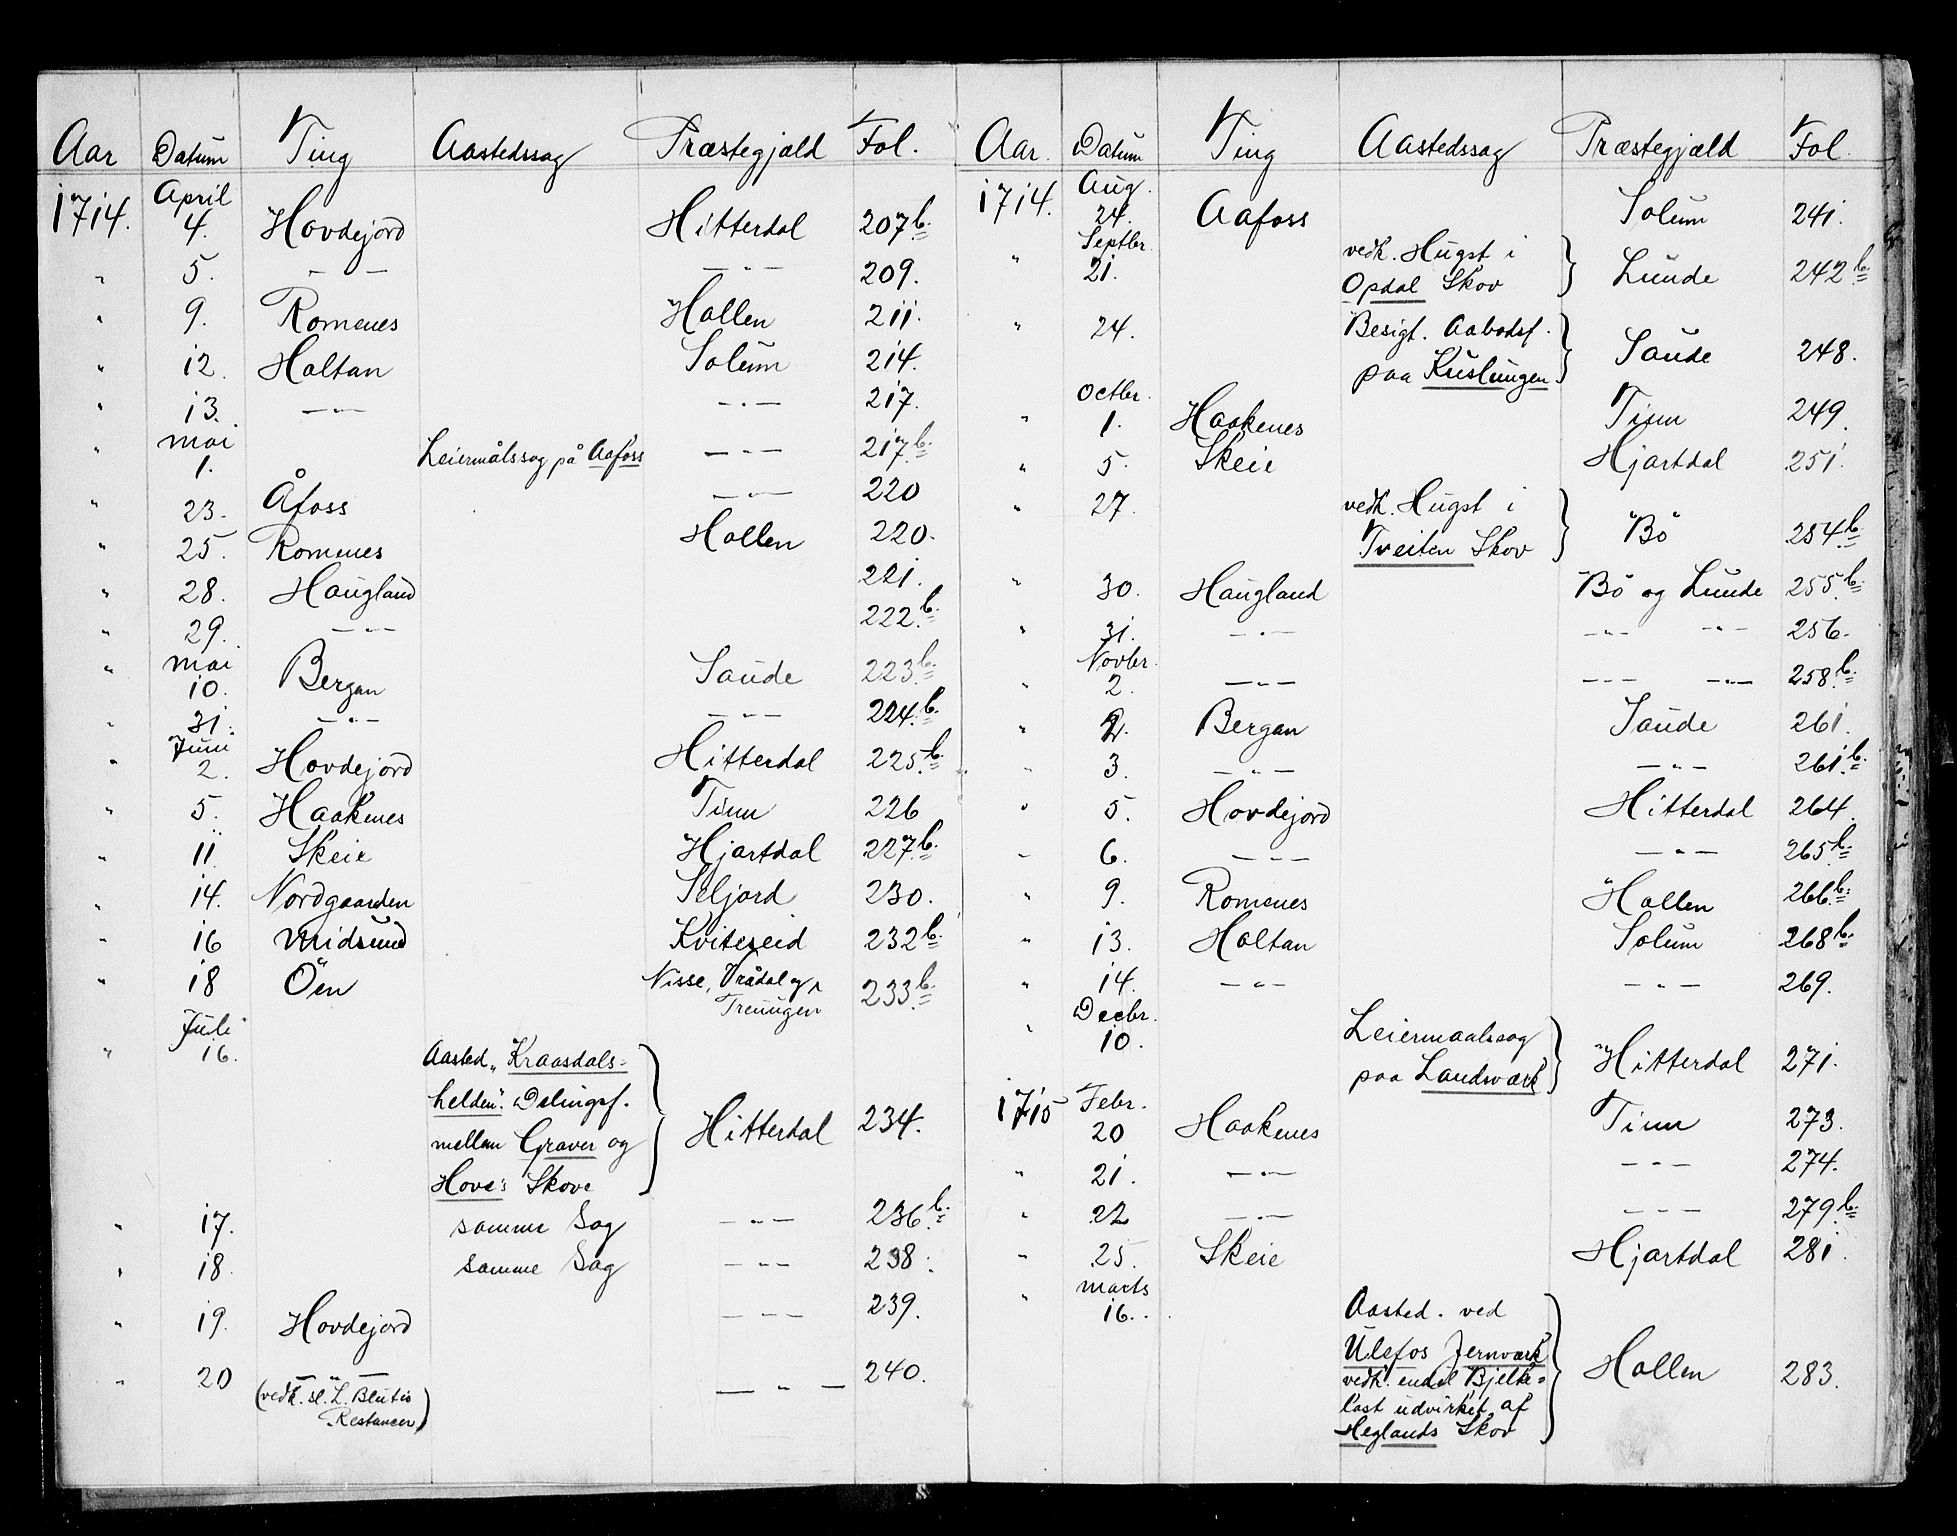 Aar Datum Ting Aastedssag Præstegjæld Fol.
1714. April 4. Hovdejord Hitterdal 207 b.
" 5. — " — — " — 209.
" 9. Romenes Hollen 211.
" 12. Holtan Solum 214.
" 13. — " — — " — 217.
" Mai 1. Leiermålssag på Aafoss — " — 217 b.
" 23. Åfoss — " — 220
" 25. Romenes Hollen 220.
" 28. Haugland 221.
" 29. — " — 222 b.
" Mai 10. Bergan Saude 223 b.
" 31. — " — — " — 224 b.
" Juni 2. Hovdejord Hitterdal 225 b.
" 5. Haakenes Tinn 226
" 11. Skeie Hjartdal 227 b.
" 14. Nordgaarden Seljord 230.
" 16 Vridsund Kviteseid 232 b.
" 18 Öen Nisse, Vrådal og
Treungen 233 b.
" Juli 16.
Aasted „Kraasdals-
helden". Delingsf.
mellem Graver og Hitterdal 234.
Hove's Skove
" 17. samme Sag — " — 236 b.
" 18. samme Sag — " — 238.
" 19. Hovdejord — " — 239.
" 20 — " — — " — 240.
(vedk. sl. L. Blutis
Restancer)
Aar. Datum Ting Aastedssag Præstegjæld Fol.
1714. Aug. 24. Aafoss Solum 241.
" Septbr. 21. vedk. Hugst i
Opdal Skov Lunde 242 b.
" 24. Besigt. Aabodsf.
paa Kuslungen Saude 248.
" Octbr. 1. Haakenes Tinn 249.
" 5. Skeie Hjartdal 251.
" 27. vedk. Hugst i
Tveiten Skov Bö 254 b.
" 30. Haugland Bö og Lunde 255 b.
" 31. — " — — " — — " — 256.
" Novbr. 2. — " — — " — — " — 258 b.
" 2. Bergan Saude 261.
" 3. — " — — " — 261 b.
" 5. Hovdejord Hitterdal 264.
" 6. — " — — " — 265 b.
" 9. Romenes Hollen 266 b.
" 13. Holtan Solum 268 b.
" 14. — " — — " — 269.
" Decbr. 10. Leiermaalssag
paa Landsværk Hitterdal 271.
1715 Febr. 20 Haakenes Tinn 273.
" 21. — " — — " — 274.
" 22 — " — — " — 279 b.
" 25. Skeie Hjartdal 281.
" Marts 16. Aasted. ved
Ulefos Jernværk
vedk. endel Bjelke- Hollen 283.
last udvirket af
Heglands Skov